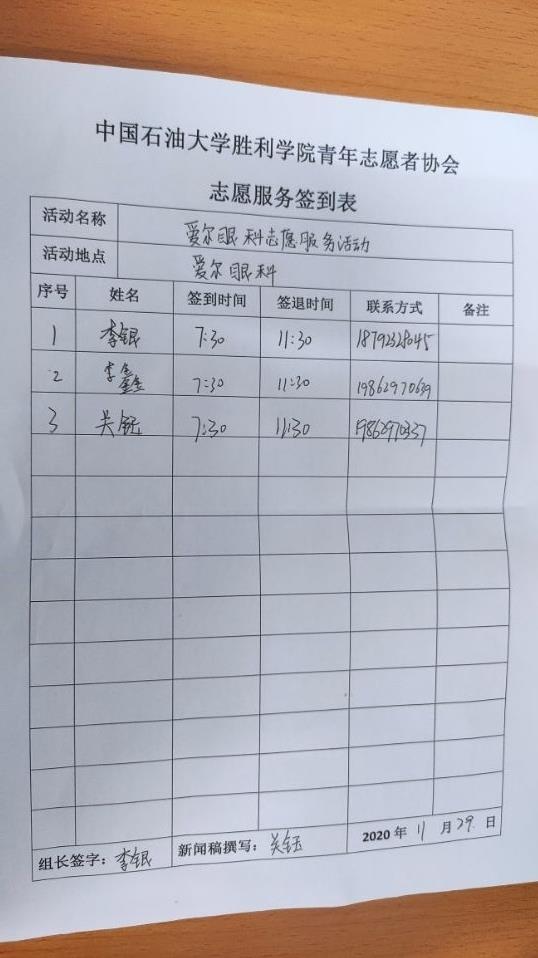 中国石油大学胜利学院青年志愿者协会
志愿服务签到表
活动名称 爱尔眼科志愿服务活动
活动地点 爱尔眼科
序号 姓名 签到时间 签退时间 联系方式 备注
1 李银 7:30 11:30 18792328045
2 李鑫 7:30 11:30 19862970639
3 7:30 11:30 19862970337
组长签字：李银 新闻稿撰写： 2020年 11 月 29 日